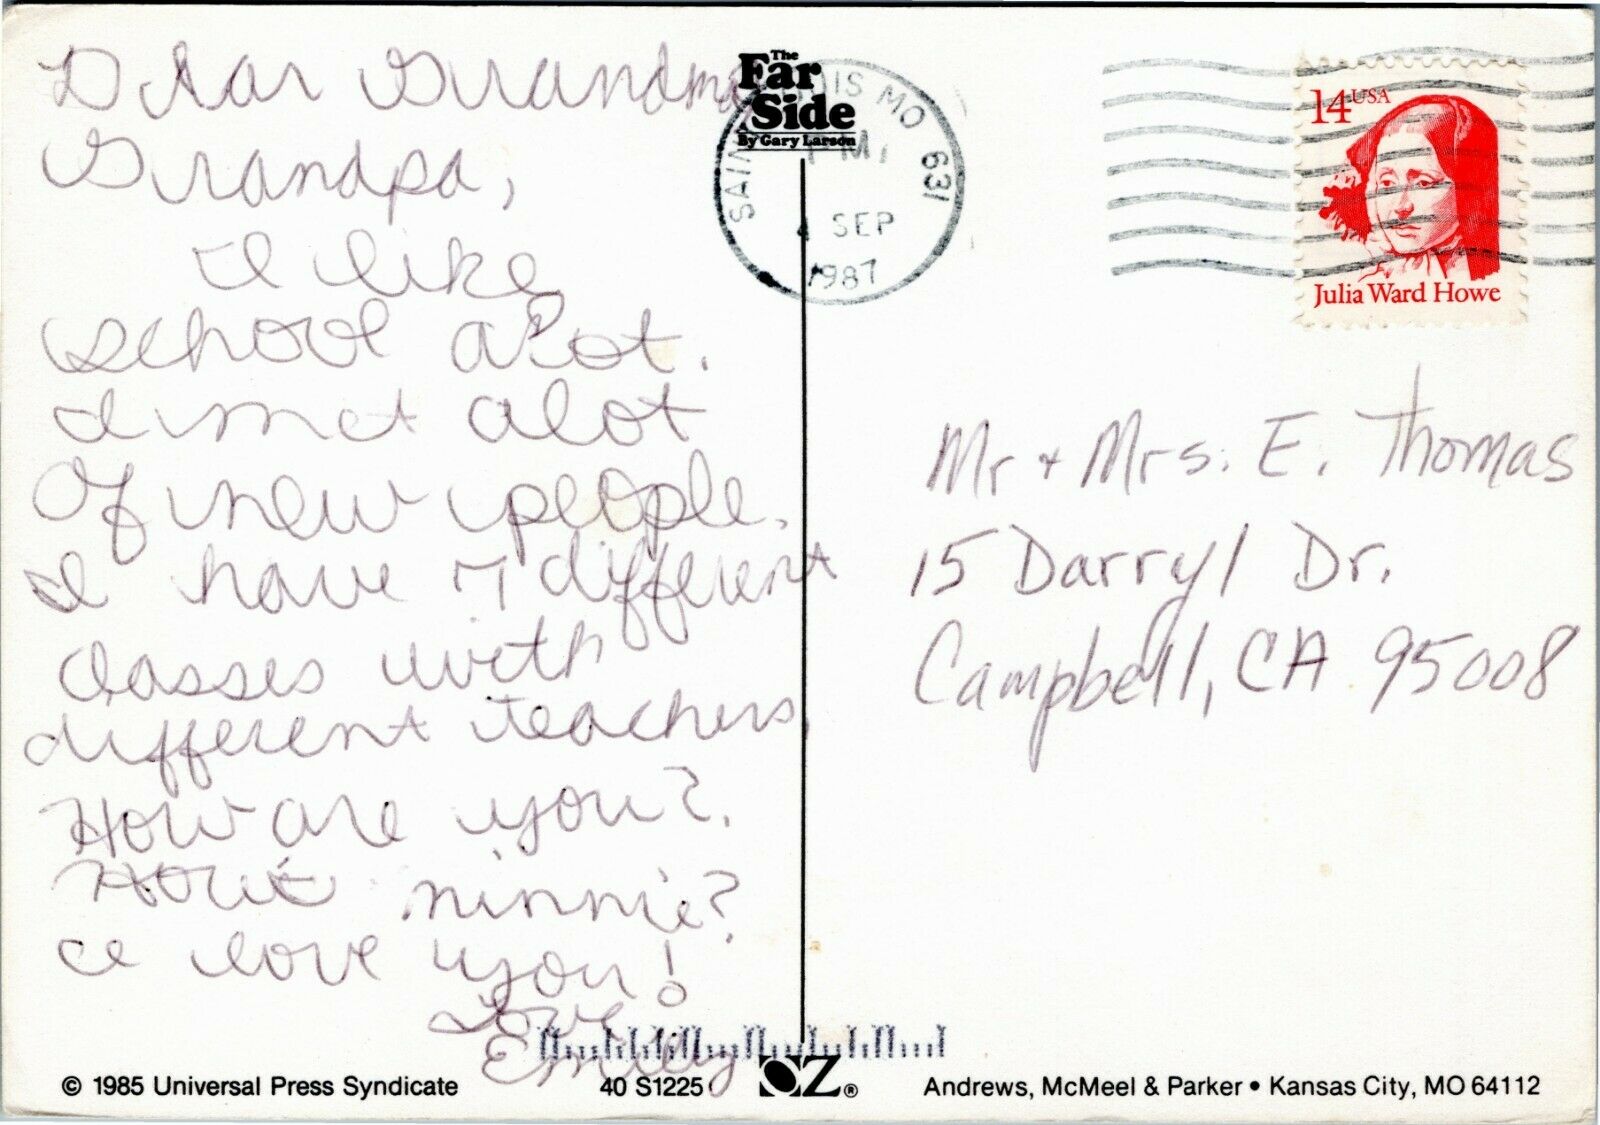 Dear Grandma
Grandpa,
I like
school alot.
I met alot
Of new people.
I have 7 different
classes with
different teachers.
How are you?
How's ninnie?
I love you!
Love
Emily
The
Far
Side
By Gary Larson
SAINT LOUIS MO 631
PM
4 SEP
1987
14 USA
Julia Ward Howe
Mr + Mrs. E. Thomas
15 Darryl Dr.
Campbell, CA 95008
© 1985 Universal Press Syndicate
40 S1225
OZ®
Andrews, McMeel & Parker • Kansas City, MO 64112